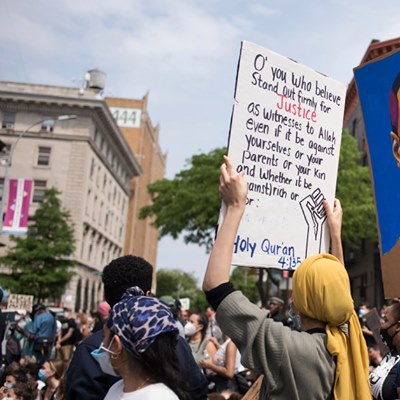 O' you who believe
Stand out firmly for
Justice
as witnesses to Allah
even if it be against
yourselves or your
parents or your kin
and whether it be
(against) rich or
or:
Holy Qur'an
4:135
444